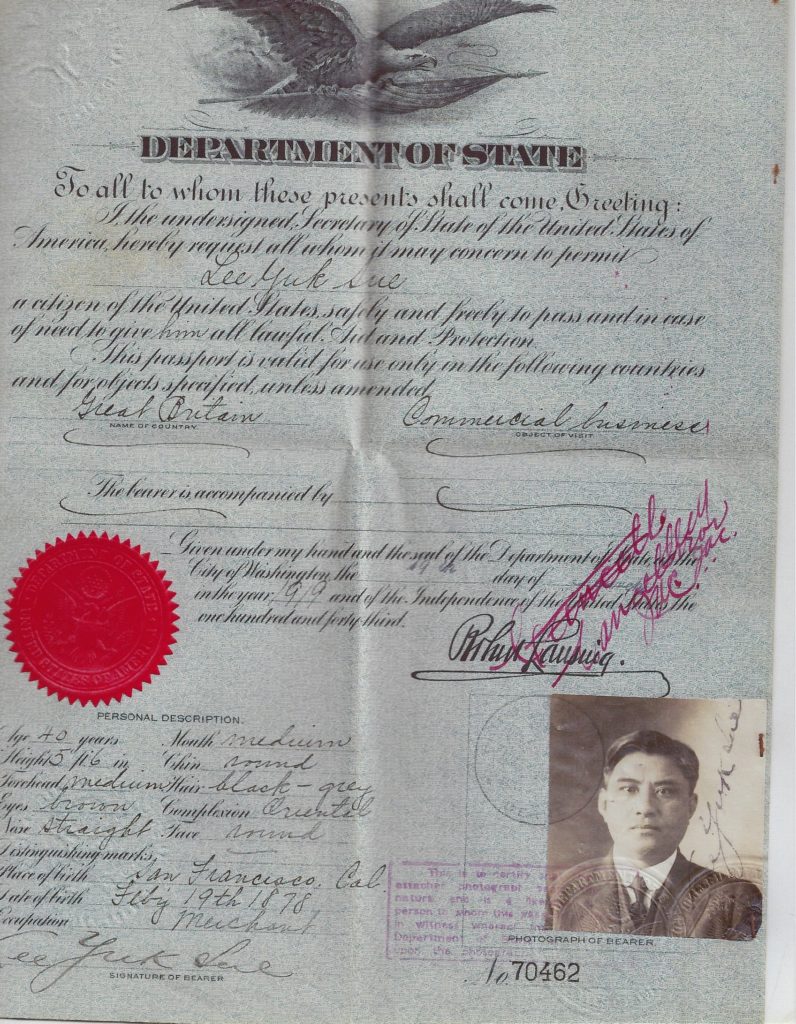 DEPARTMENT OF STATE
To all to whom these presents shall come, Greeting:
I, the undersigned, Secretary of State of the United States of
America, hereby request all whom it may concern to permit
Lee Yuk Sue
a citizen of the United States, safely and freely to pass and in case
of need to give him all lawful Aid and Protection.
This passport is valid for use only in the following countries
and for objects specified, unless amended.
Great Britain Commercial business
NAME OF COUNTRY. OBJECT OF VISIT.
The bearer is accompanied by
Given under my hand and the seal of the Department of State at the
City of Washington, the 19th day of
in the year 1919 and of the Independence of the United States the
one hundred and forty third.
Robert Lansing.
PERSONAL DESCRIPTION.
Age 40 years Mouth medium
Height 5 ft 6 in Chin round
Forehead medium Hair black-grey
Eyes brown Complexion Oriental
Nose straight Face round
Distinguishing marks
Place of birth San Francisco, Cal.
Date of birth Feb'y 19th 1878
Occupation Merchant
Lee Yuk Sue
SIGNATURE OF BEARER
Yuk Sue
This is to certify
attached photograph
nature are a
person to whom this
in witness whereof the
Department of
upon the photograph
PHOTOGRAPH OF BEARER.
No 70462